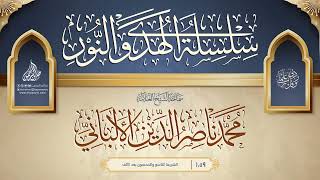 سلسلة الهدى والنور
سماحة الشيخ العلامة
محمد ناصر الدين الألباني
الشريط التاسع والخمسون بعد الألف
١٠٥٩